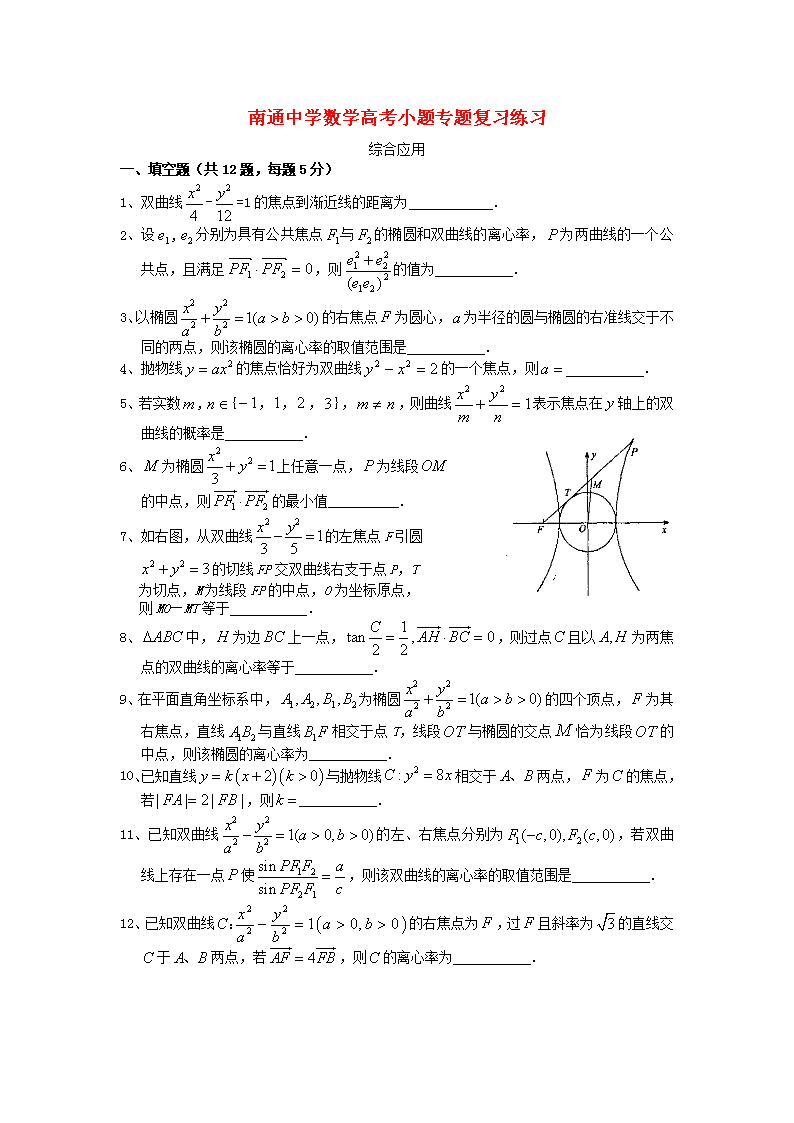 南通中学数学高考小题专题复习练习
综合应用
一、填空题（共12题，每题5分）
1、双曲线 x²/4 - y²/12 =1的焦点到渐近线的距离为____________.
2、设e₁,e₂分别为具有公共焦点F₁与F₂的椭圆和双曲线的离心率，P为两曲线的一个公
共点，且满足 \overrightarrow{PF₁}·\overrightarrow{PF₂} = 0，则 (e₁²+e₂²)/(e₁e₂)² 的值为___________.
3、以椭圆 x²/a² + y²/b² = 1(a > b > 0) 的右焦点F为圆心，a为半径的圆与椭圆的右准线交于不
同的两点，则该椭圆的离心率的取值范围是___________.
4、抛物线y = ax²的焦点恰好为双曲线y² − x² = 2的一个焦点，则a = ___________.
5、若实数m,n∈{−1，1，2，3}，m ≠ n，则曲线 x²/m + y²/n = 1表示焦点在y轴上的双
曲线的概率是___________.
6、M为椭圆 x²/3 + y² = 1上任意一点，P为线段OM
的中点，则 \overrightarrow{PF₁}·\overrightarrow{PF₂} 的最小值__________.
7、如右图，从双曲线 x²/3 − y²/5 = 1的左焦点F引圆
x² + y² = 3的切线FP交双曲线右支于点P，T
为切点，M为线段FP的中点，O为坐标原点，
则MO－MT等于___________.
y
P
M
T
F
O
x
8、ΔABC中，H为边BC上一点，tan C/2 = 1/2, \overrightarrow{AH}·\overrightarrow{BC} = 0，则过点C且以A,H为两焦
点的双曲线的离心率等于___________.
9、在平面直角坐标系中，A₁,A₂,B₁,B₂为椭圆 x²/a² + y²/b² = 1(a > b > 0) 的四个顶点，F为其
右焦点，直线A₁B₂与直线B₁F相交于点T，线段OT与椭圆的交点M恰为线段OT的
中点，则该椭圆的离心率为___________.
10、已知直线y = k(x+2)(k>0)与抛物线C: y² = 8x相交于A、B两点，F为C的焦点，
若|FA|= 2|FB|，则k = ___________.
11、已知双曲线 x²/a² − y²/b² = 1(a > 0, b > 0) 的左、右焦点分别为F₁(−c,0),F₂(c,0)，若双曲
线上存在一点P使 sin PF₁F₂/sin PF₂F₁ = a/c，则该双曲线的离心率的取值范围是___________.
12、已知双曲线C: x²/a² − y²/b² = 1(a > 0, b > 0)的右焦点为F,过F且斜率为√3的直线交
C于A、B两点，若 \overrightarrow{AF} = 4\overrightarrow{FB}，则C的离心率为___________.